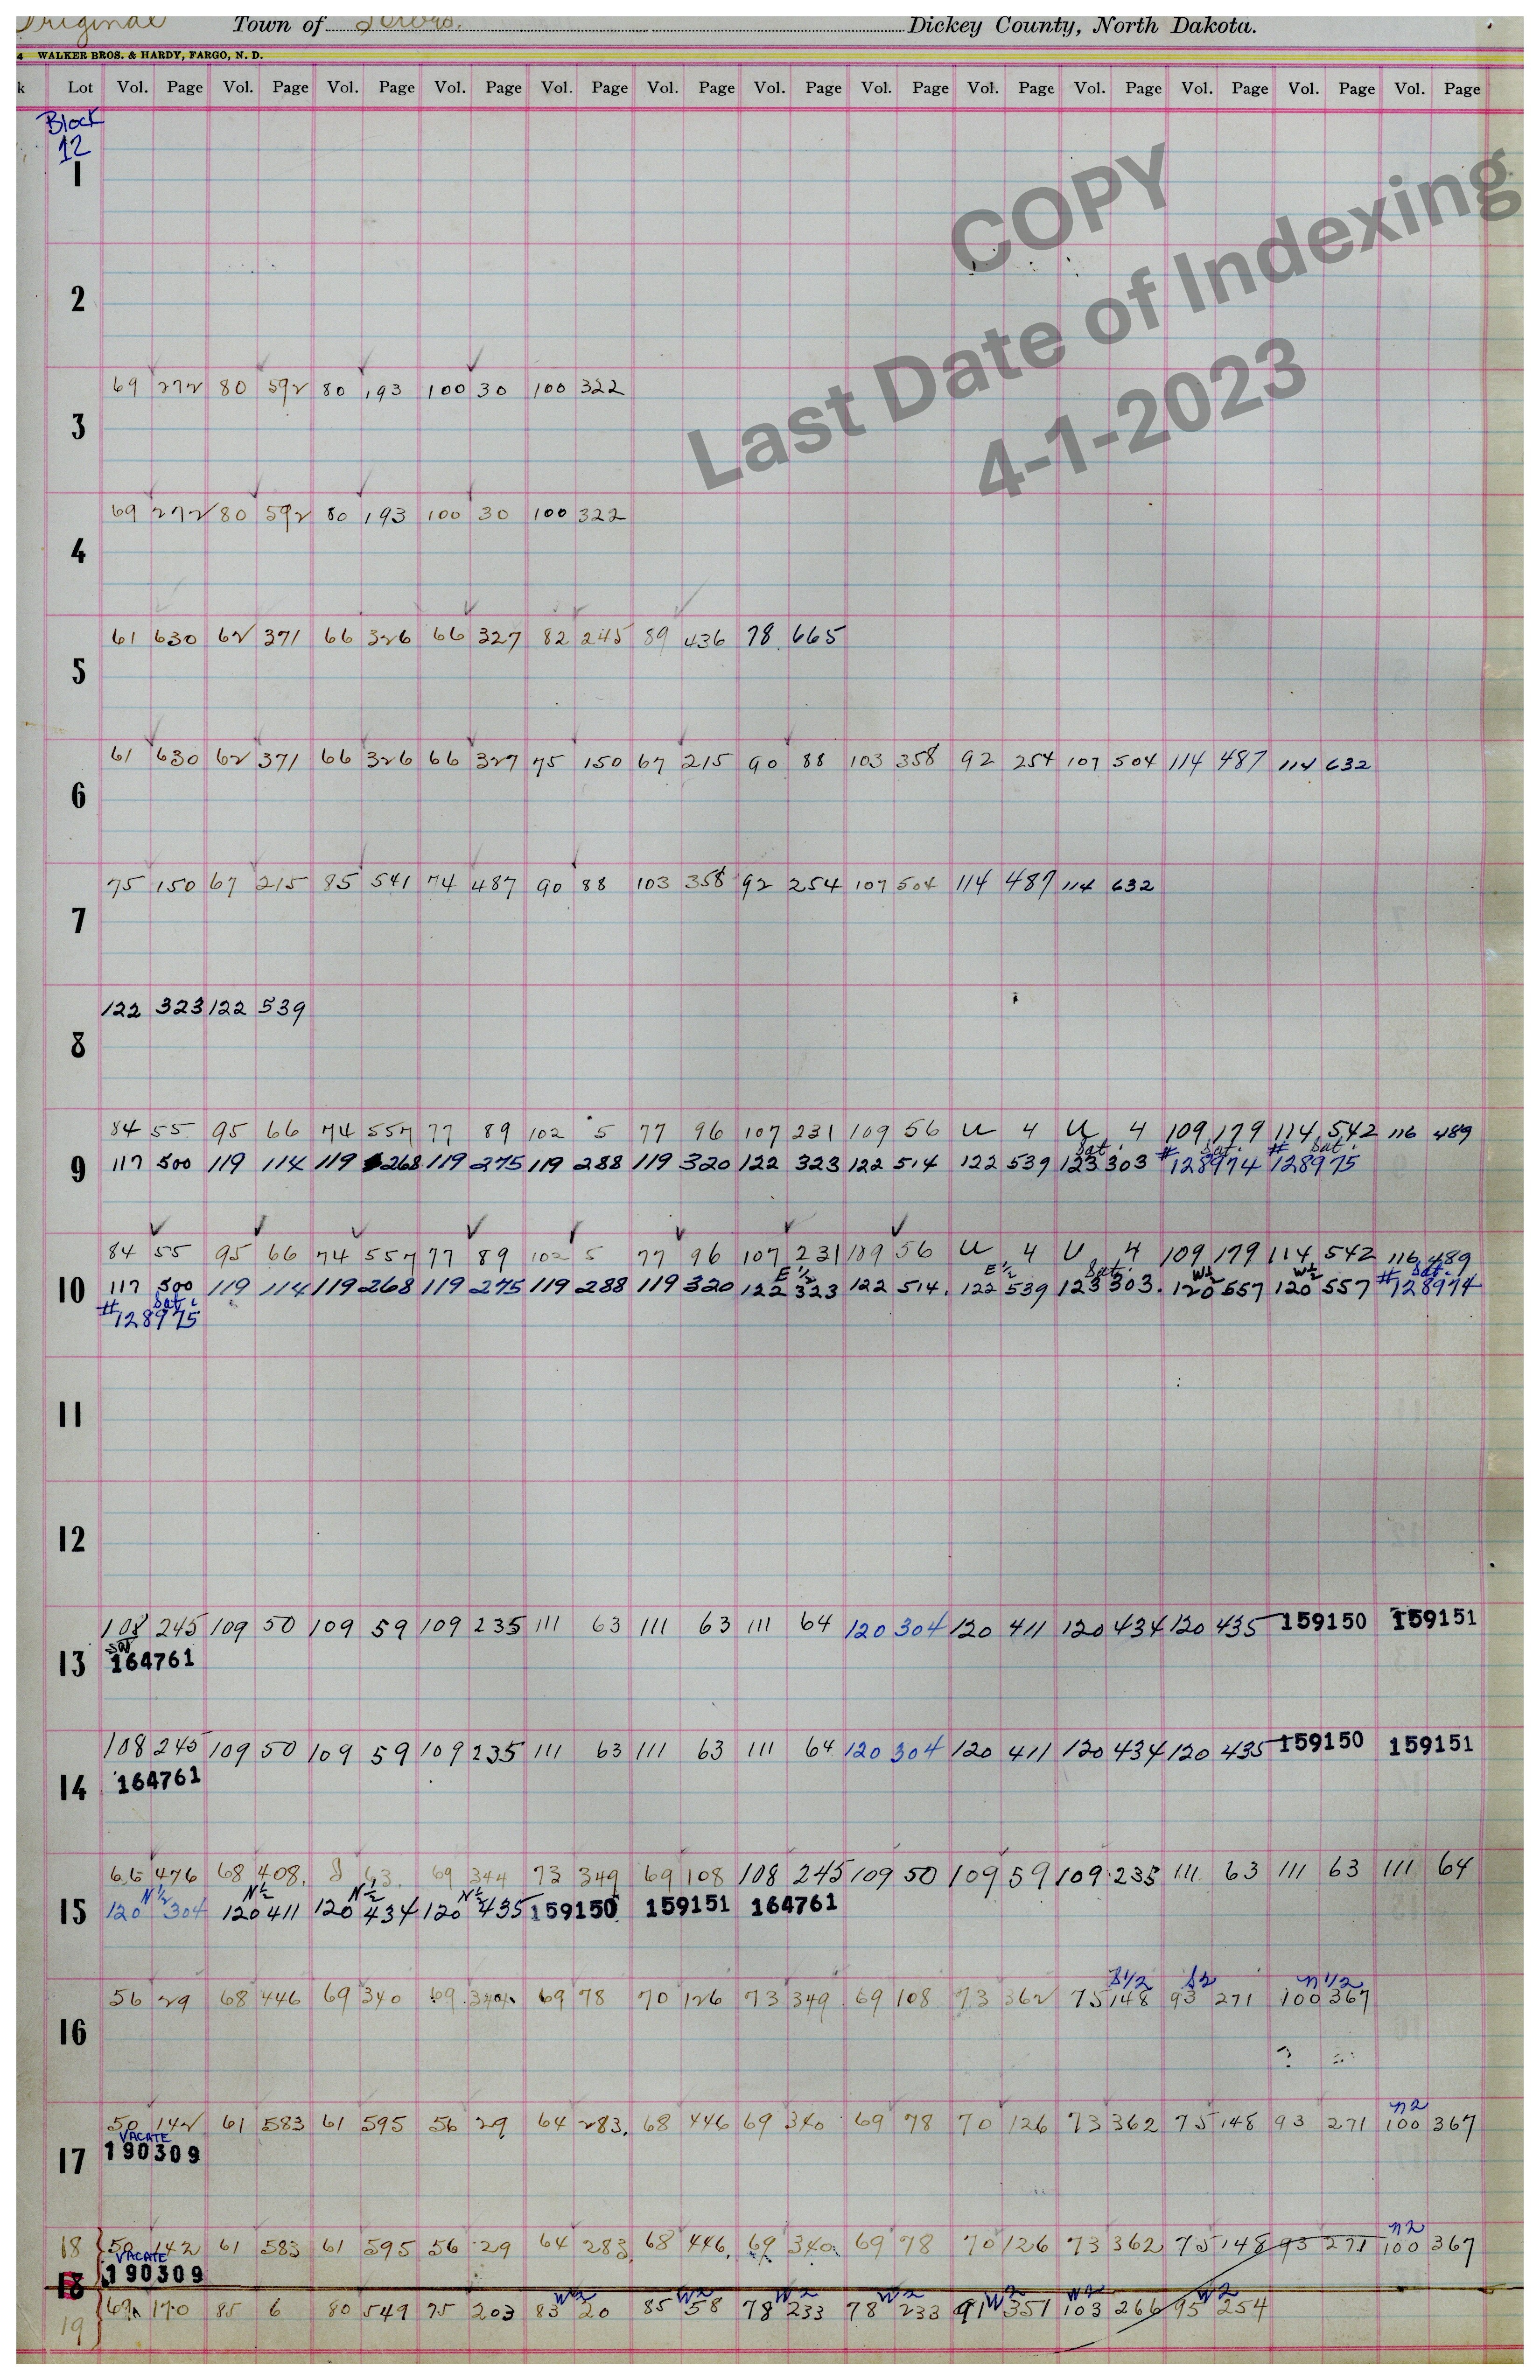 Original Town of Dickey County, North Dakota.
4 WALKER BROS. & HARDY, FARGO, N. D.
k Lot Vol. Page Vol. Page Vol. Page Vol. Page Vol. Page Vol. Page Vol. Page Vol. Page Vol. Page Vol. Page Vol. Page Vol. Page Vol. Page
Block
12
1
COPY
Last Date of Indexing
4-1-2023
2
69 272 80 592 80 193 100 30 100 322
3
69 272 80 592 80 193 100 30 100 322
4
61 630 62 371 66 326 66 327 82 245 89 436 78 665
5
61 630 62 371 66 326 66 327 75 150 67 215 90 88 103 358 92 254 107 504 114 487 114 632
6
75 150 67 215 85 541 74 487 90 88 103 358 92 254 107 504 114 487 114 632
7
122 323 122 539
8
84 55 95 66 74 557 77 89 102 5 77 96 107 231 109 56 U 4 U 4 109 179 114 542 116 489
Sat. Sat. Sat.
9 117 500 119 114 119 268 119 275 119 288 119 320 122 323 122 514 122 539 123 303 #128974 #128975
84 55 95 66 74 557 77 89 102 5 77 96 107 231 109 56 U 4 U 4 109 179 114 542 116 489
E 1/2 E 1/2 Sat. W 1/2 W 1/2 Sat.
10 117 500 119 114 119 268 119 275 119 288 119 320 122 323 122 514. 122 539 123 303. 120 557 120 557 #128974
Sat.
#128975
11
12
108 245 109 50 109 59 109 235 111 63 111 63 111 64 120 304 120 411 120 434 120 435 159150 159151
13 164761
108 245 109 50 109 59 109 235 111 63 111 63 111 64 120 304 120 411 120 434 120 435 159150 159151
14 164761
66 476 68 408. 69 344 73 349 69 108 108 245 109 50 109 59 109 235 111 63 111 63 111 64
N 1/2 N 1/2 N 1/2 N 1/2
15 120 304 120 411 120 434 120 435 159150 159151 164761
S 1/2 S2 N 1/2
56 29 68 446 69 340 69 340 69 78 70 126 73 349 69 108 73 362 75 148 93 271 100 367
16
N2
50 142 61 583 61 595 56 29 64 283. 68 446 69 340 69 78 70 126 73 362 75 148 93 271 100 367
VACATE
17 190309
N2
18 50 142 61 583 61 595 56 29 64 283 68 446 69 340 69 78 70 126 73 362 75 148 93 271 100 367
VACATE
18 190309
W2 W2 W2 W2 W2 W2 W2
19 170 85 6 80 549 75 203 83 20 85 58 78 233 78 233 91 351 103 266 95 254